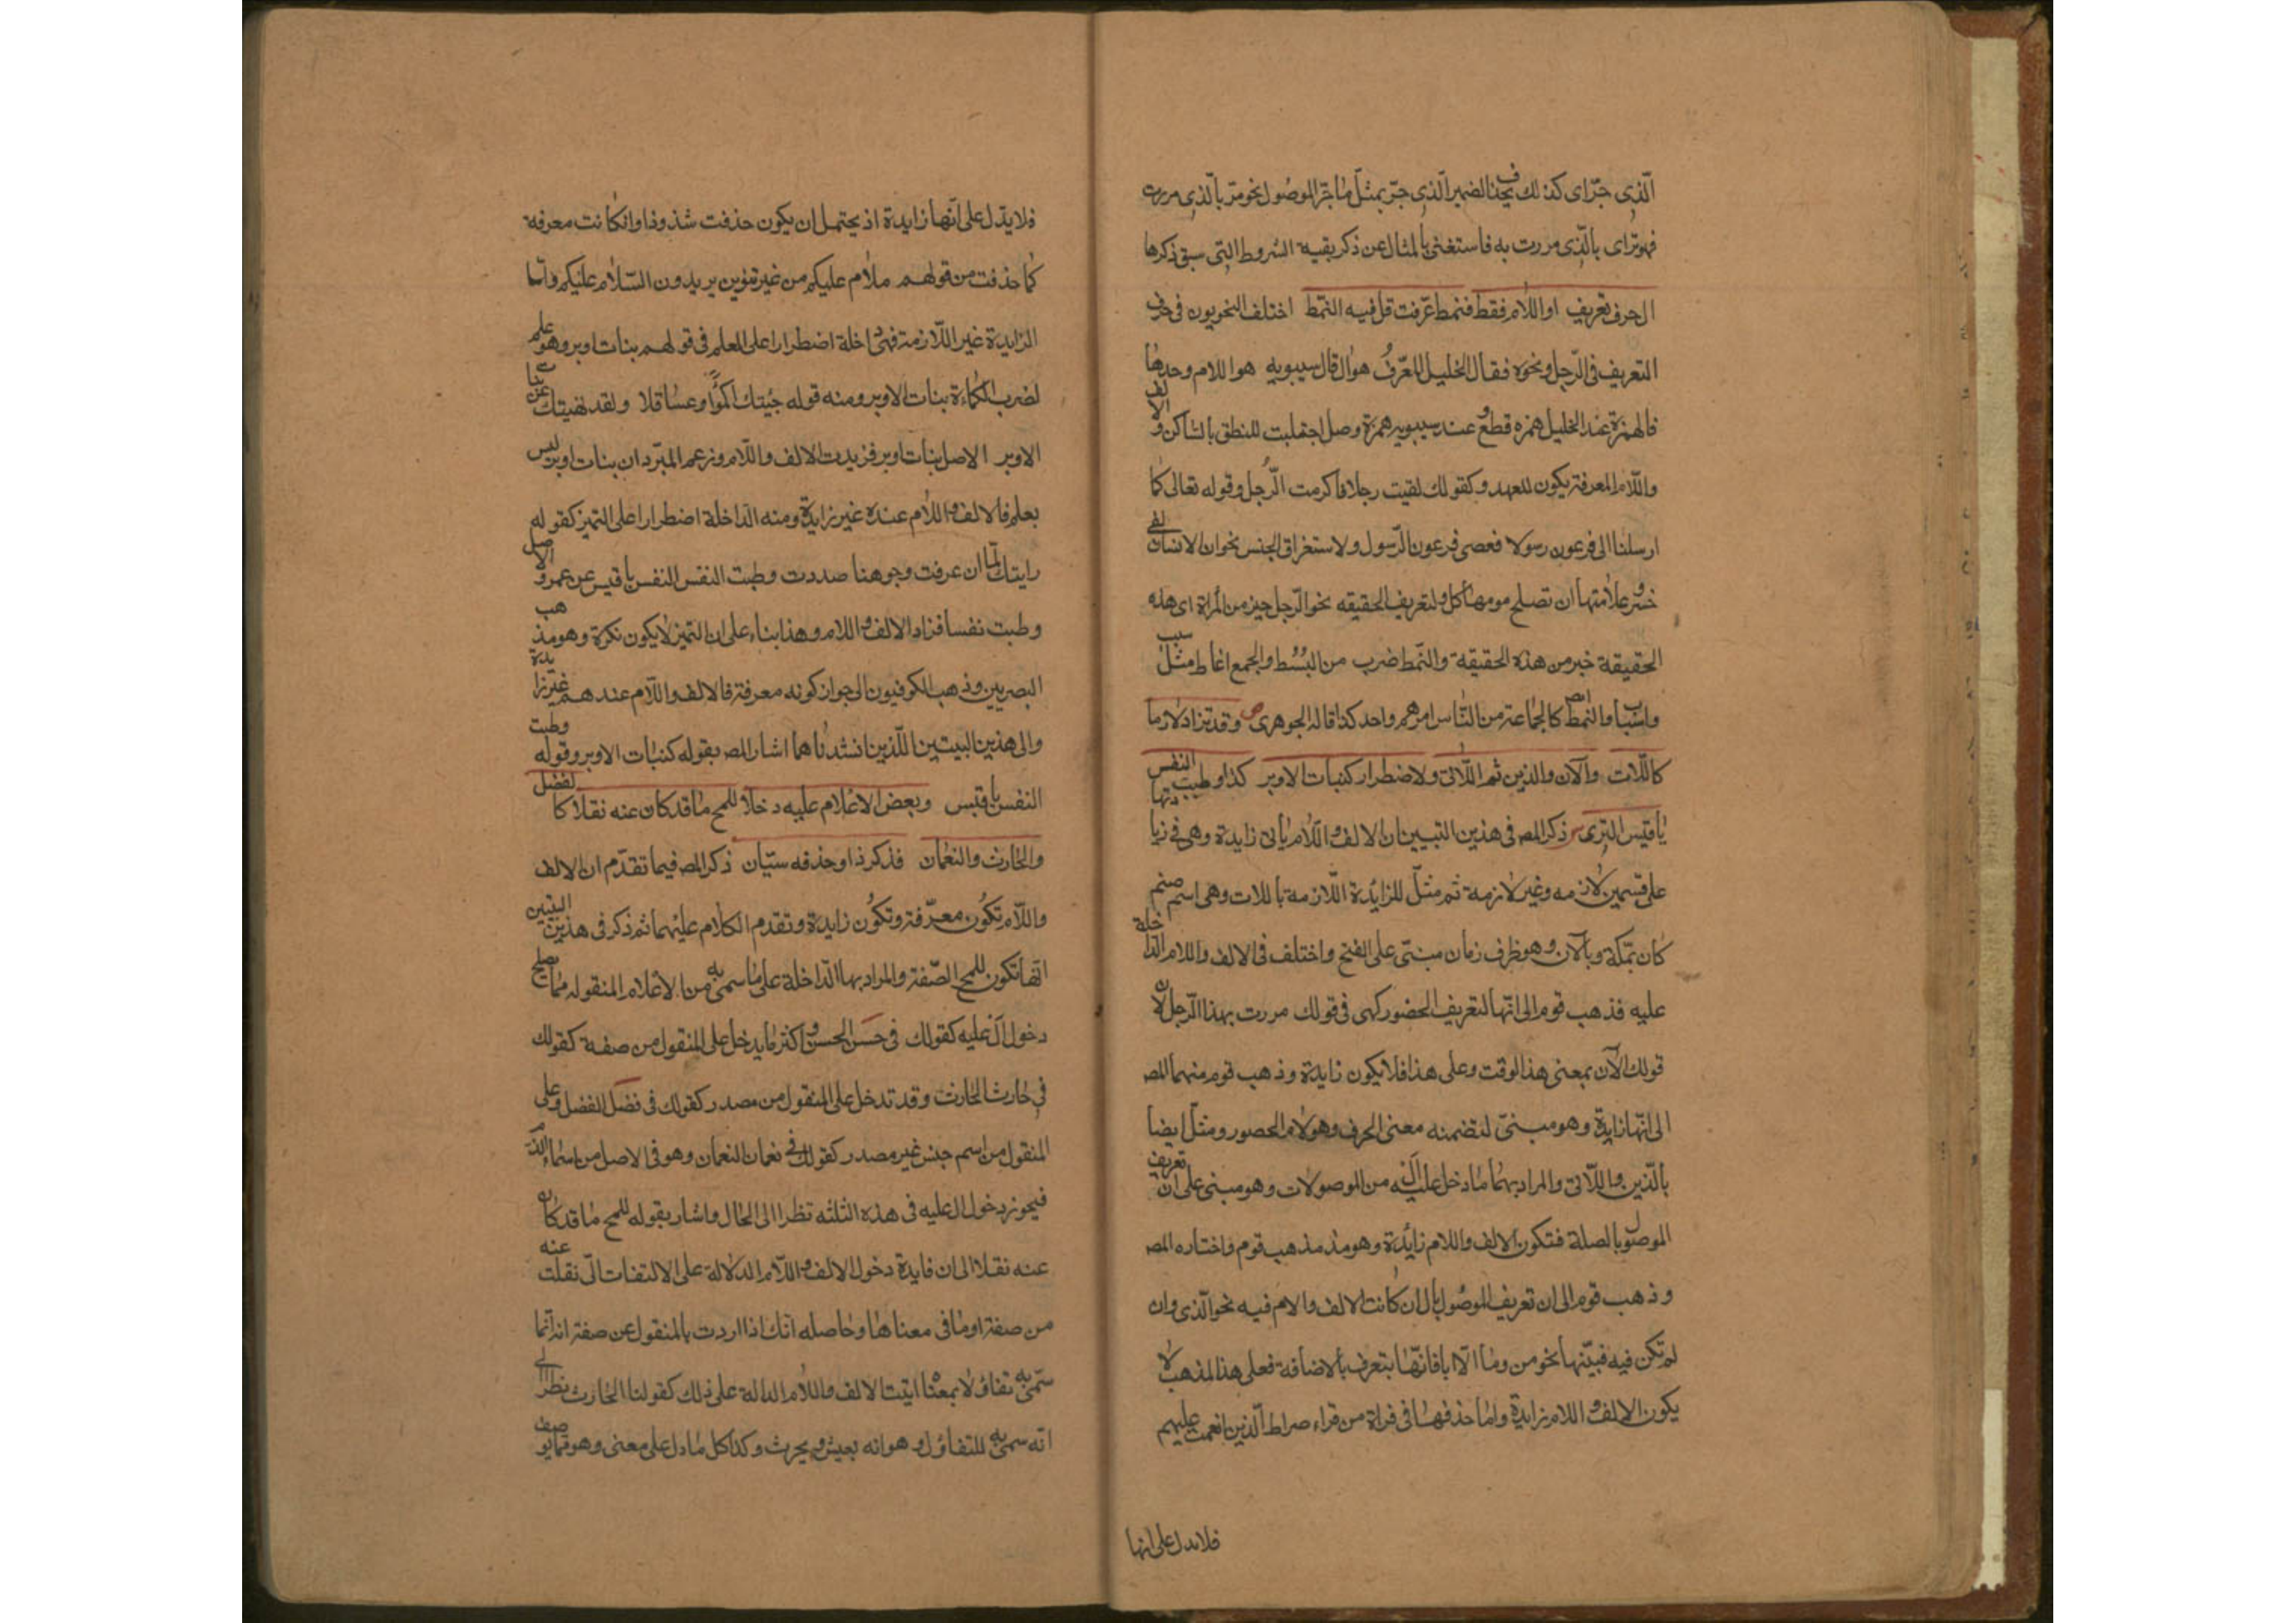 الّذى جرّ اى كذلك يحذف الضمير الّذى جرّ بمثل ما جرّ الموصول نحو مرّ بالّذى مررت
فهو برّ اى بالّذى مررت به فاستغنى بالمثال عن ذكر بقيه الشروط الّتى سبق ذكرها
ال حرف تعريف او اللّام فقط فنمط عرّفت قل فيه النمّط اختلف النحويون فى حرف
التعريف فى الرّجل ونحوه فقال الخليل المعرّف هو ال قال سيبويه هو اللام وحدها
فالهمزة عند الخليل همزه قطع وعند سيبويه همزة وصل اجتلبت للنطق بالسّاكن والالف
واللّام المعرفة يكون للعهد وكقولك لقيت رجلا فاكرمت الرّجل وقوله تعالى كما
ارسلنا الى فرعون رسولا فعصى فرعون الرّسول ولاستغراق الجنس نحو ان الانسان لفى
خسر وعلامتها ان تصلح مومها كل ولتعريف الحقيقه نحو الرّجل خير من المرأة اى هذه
الحقيقة خير من هذه الحقيقة والنّمط ضرب من البُسُط والجمع انماط مثل سبب
واسباب والنمط ايضا كالجماعة من النّاس امرهم واحد كذا قاله الجوهرى ص وقد تزاد لازما
كاللّات والآن والذين ثم اللّاتى ولاضطرار كبنات الاوبر كذا وطبت النفس
يا قيس السّرى ش ذكر المص فى هذين البيتين ان الالف واللّام ياتى زايدة وهى فى زيادتها
على قسمين لازمه وغير لازمة ثم مثّل للزائدة اللّازمة باللات وهى اسم صنم
كان بمكّة وبالآن وهو ظرف زمان مبنىّ على الفتح واختلف فى الالف واللام الداخلة
عليه فذهب قوم الى انّها لتعريف الحضور كهى فى قولك مررت بهذا الرّجل لان
قولك الآن بمعنى هذا الوقت وعلى هذا فلا يكون زايدة وذهب قوم منهم المص
الى انّها زايدة وهو مبنىّ لتضمنه معنى الحرف وهو لام الحضور ومثّل ايضا
بالّذين واللّاتى والمراد بهما ما دخل عليه ال من الموصولات وهو مبنى على ان تعريف
الموصول بالصلة فتكون الالف واللام زائدة وهو مذهب قوم واختاره المص
وذهب قوم الى ان تعريف الموصول بال ان كانت الالف والام فيه نحو الّذى وان
لم تكن فيه فبنيّتها نحو من وما الّا ايا فانّها يتعرف بالاضافة فعلى هذا المذهب لا
يكون الالف واللام زايدة واما حذفها فى قراة من قراء صراط الّذين انعمت عليهم
فلا يدل على انها
فلا يدّل على انّها زايدة اذ يحتمل ان يكون حذفت شذوذا وان كانت معرفة
كما حذفت من قولهم سلام عليكم من غير تنوين يريدون السّلام عليكم وامّا
الزايدة غير اللّازمة فهى الداخلة اضطرارا على العلم فى قولهم بنات اوبر وهو علم
لضرب الكماءة بنات الاوبر ومنه قوله جنيتك اكمؤا وعساقلا ولقد نهيتك عن بنات
الاوبر الاصل بنات اوبر فزيدت الالف واللّام وزعم المبرّد ان بنات اوبر ليس
بعلم فالالف واللام عنده غير زايدة ومنه الدّاخلة اضطرارا على التميز كقوله
رايتك لمّا ان عرفت وجوهنا صددت وطبت النفس النفس يا قيس عن عمرو والاصل
وطبت نفسا فزاد الالف واللام وهذا بناء على ان التميز لا يكون نكرة وهو مذهب
البصريين وذهب الكوفيون الى جواز كونه معرفة فالالف واللّام عندهم غير زايدة
والى هذين البيتين اللّذين انشدناهما اشار المص بقوله كبنات الاوبر وقوله وطبت
النفس يا قيس وبعض الاعلام عليه دخلا للمح ما قد كان عنه نقلا كالفضل
والحارث والنعمان فذكر ذا وحذفه سيّان ذكر المص فيما تقدّم ان الالف
واللّام تكون معرّفة وتكون زايدة وتقدم الكلام عليهما ثم ذكر فى هذين البيتين
انّها تكون للمح الصّفة والمراد بها الدّاخلة على ما سمى به من الاعلام المنقوله مما يصلح
دخول ال عليه كقولك فى حسن الحسن واكثر ما يدخل على المنقول من صفة كقولك
فى حارث الحارث وقد تدخل على المنقول من مصدر كقولك فى فضل الفضل وعلى
المنقول من اسم جنس غير مصدر كقولك فى نعمان النعمان وهو فى الاصل من اسماء الدّم
فيجوز دخول ال عليه فى هذه الثلثه نظرا الى الحال واشار بقوله للمح ما قد كان
عنه نقلا الى ان فايدة دخول الالف واللّام الدلالة على الالتفات الى نقلت عنه
من صفة او ما فى معناها وحاصله انّك اذا اردت بالمنقول عن صفة انه انّما
سمّى به تفاؤلا بمعناه اتيت الالف واللام الدالة على ذلك كقولنا الحارث نظرا الى
انّه سمى به للتفاؤل وهو انه يعيش ويحرث وكذا كل ما دل على معنى وهو مما يوصف